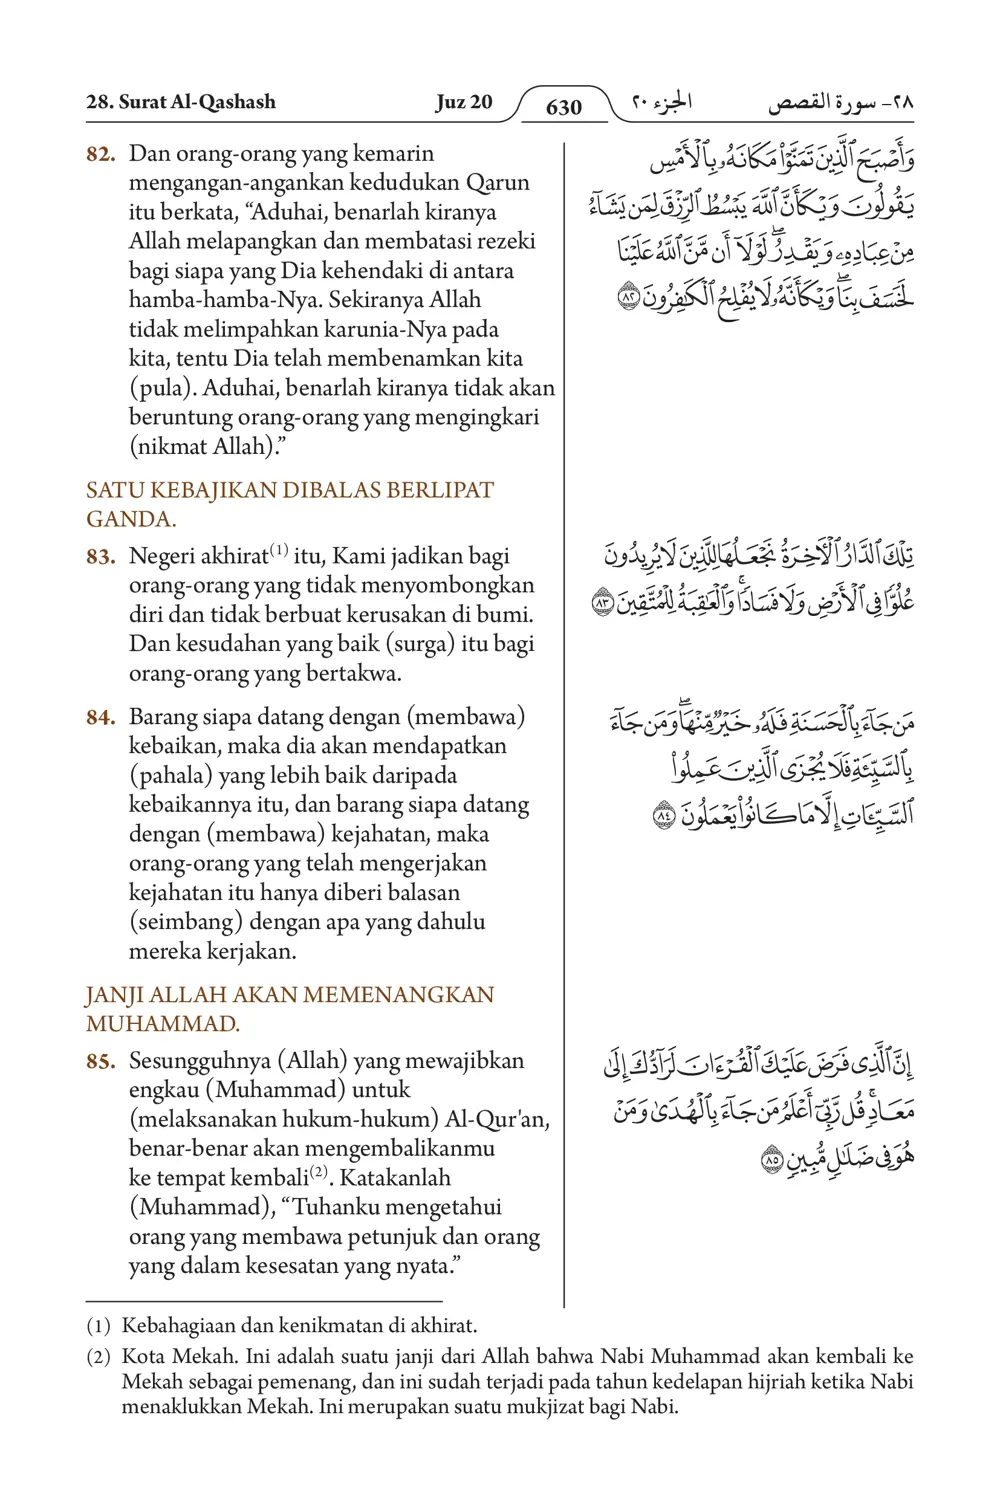 28. Surat Al-Qashash
Juz 20
630
الجزء ٢٠
٢٨- سورة القصص
82. Dan orang-orang yang kemarin
mengangan-angankan kedudukan Qarun
itu berkata, “Aduhai, benarlah kiranya
Allah melapangkan dan membatasi rezeki
bagi siapa yang Dia kehendaki di antara
hamba-hamba-Nya. Sekiranya Allah
tidak melimpahkan karunia-Nya pada
kita, tentu Dia telah membenamkan kita
(pula). Aduhai, benarlah kiranya tidak akan
beruntung orang-orang yang mengingkari
(nikmat Allah).”
SATU KEBAJIKAN DIBALAS BERLIPAT
GANDA.
83. Negeri akhirat(1) itu, Kami jadikan bagi
orang-orang yang tidak menyombongkan
diri dan tidak berbuat kerusakan di bumi.
Dan kesudahan yang baik (surga) itu bagi
orang-orang yang bertakwa.
84. Barang siapa datang dengan (membawa)
kebaikan, maka dia akan mendapatkan
(pahala) yang lebih baik daripada
kebaikannya itu, dan barang siapa datang
dengan (membawa) kejahatan, maka
orang-orang yang telah mengerjakan
kejahatan itu hanya diberi balasan
(seimbang) dengan apa yang dahulu
mereka kerjakan.
JANJI ALLAH AKAN MEMENANGKAN
MUHAMMAD.
85. Sesungguhnya (Allah) yang mewajibkan
engkau (Muhammad) untuk
(melaksanakan hukum-hukum) Al-Qur'an,
benar-benar akan mengembalikanmu
ke tempat kembali(2). Katakanlah
(Muhammad), “Tuhanku mengetahui
orang yang membawa petunjuk dan orang
yang dalam kesesatan yang nyata.”
وَأَصْبَحَ ٱلَّذِينَ تَمَنَّوْا۟ مَكَانَهُۥ بِٱلْأَمْسِ
يَقُولُونَ وَيْكَأَنَّ ٱللَّهَ يَبْسُطُ ٱلرِّزْقَ لِمَن يَشَآءُ
مِنْ عِبَادِهِۦ وَيَقْدِرُ ۖ لَوْلَآ أَن مَّنَّ ٱللَّهُ عَلَيْنَا
لَخَسَفَ بِنَا ۖ وَيْكَأَنَّهُۥ لَا يُفْلِحُ ٱلْكَٰفِرُونَ ٨٢
تِلْكَ ٱلدَّارُ ٱلْءَاخِرَةُ نَجْعَلُهَا لِلَّذِينَ لَا يُرِيدُونَ
عُلُوًّا فِى ٱلْأَرْضِ وَلَا فَسَادًا ۚ وَٱلْعَٰقِبَةُ لِلْمُتَّقِينَ ٨٣
مَن جَآءَ بِٱلْحَسَنَةِ فَلَهُۥ خَيْرٌ مِّنْهَا ۖ وَمَن جَآءَ
بِٱلسَّيِّئَةِ فَلَا يُجْزَى ٱلَّذِينَ عَمِلُوا۟
ٱلسَّيِّـَٔاتِ إِلَّا مَا كَانُوا۟ يَعْمَلُونَ ٨٤
إِنَّ ٱلَّذِى فَرَضَ عَلَيْكَ ٱلْقُرْءَانَ لَرَآدُّكَ إِلَىٰ
مَعَادٍ ۚ قُل رَّبِّىٓ أَعْلَمُ مَن جَآءَ بِٱلْهُدَىٰ وَمَنْ
هُوَ فِى ضَلَٰلٍ مُّبِينٍ ٨٥
(1) Kebahagiaan dan kenikmatan di akhirat.
(2) Kota Mekah. Ini adalah suatu janji dari Allah bahwa Nabi Muhammad akan kembali ke
Mekah sebagai pemenang, dan ini sudah terjadi pada tahun kedelapan hijriah ketika Nabi
menaklukkan Mekah. Ini merupakan suatu mukjizat bagi Nabi.